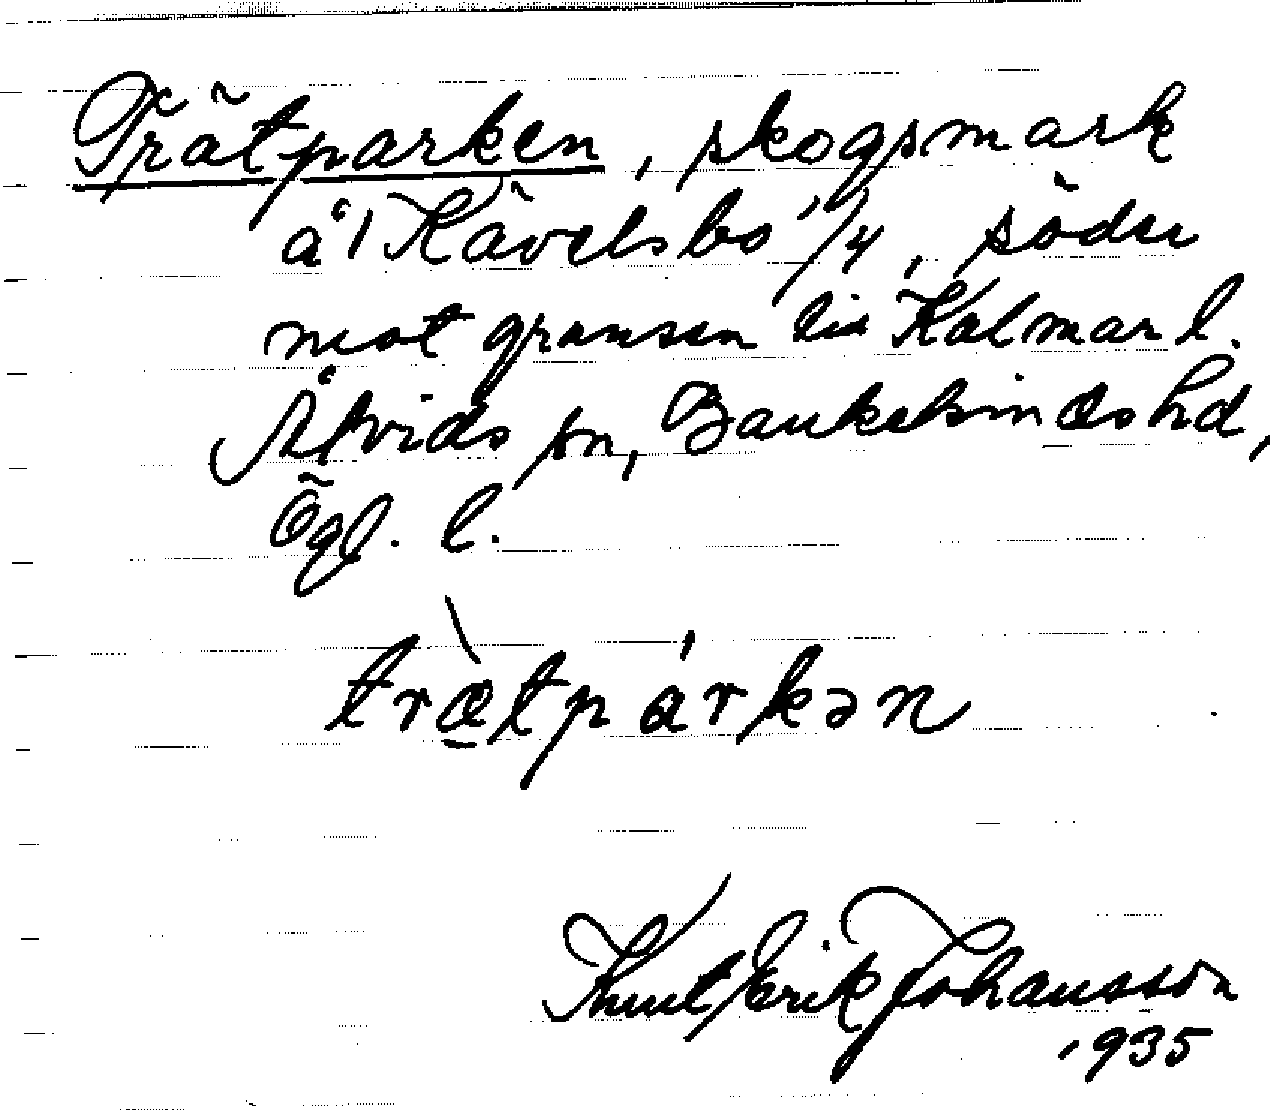 Trätparken, skogsmark
å 1 Kävelsbo 1/4, söder
mot gränsen till Kalmar l.
Åtvids sn, Bankekinds hd,
Ögl. l.
trætpárkən
Knut Erik Johansson
1935